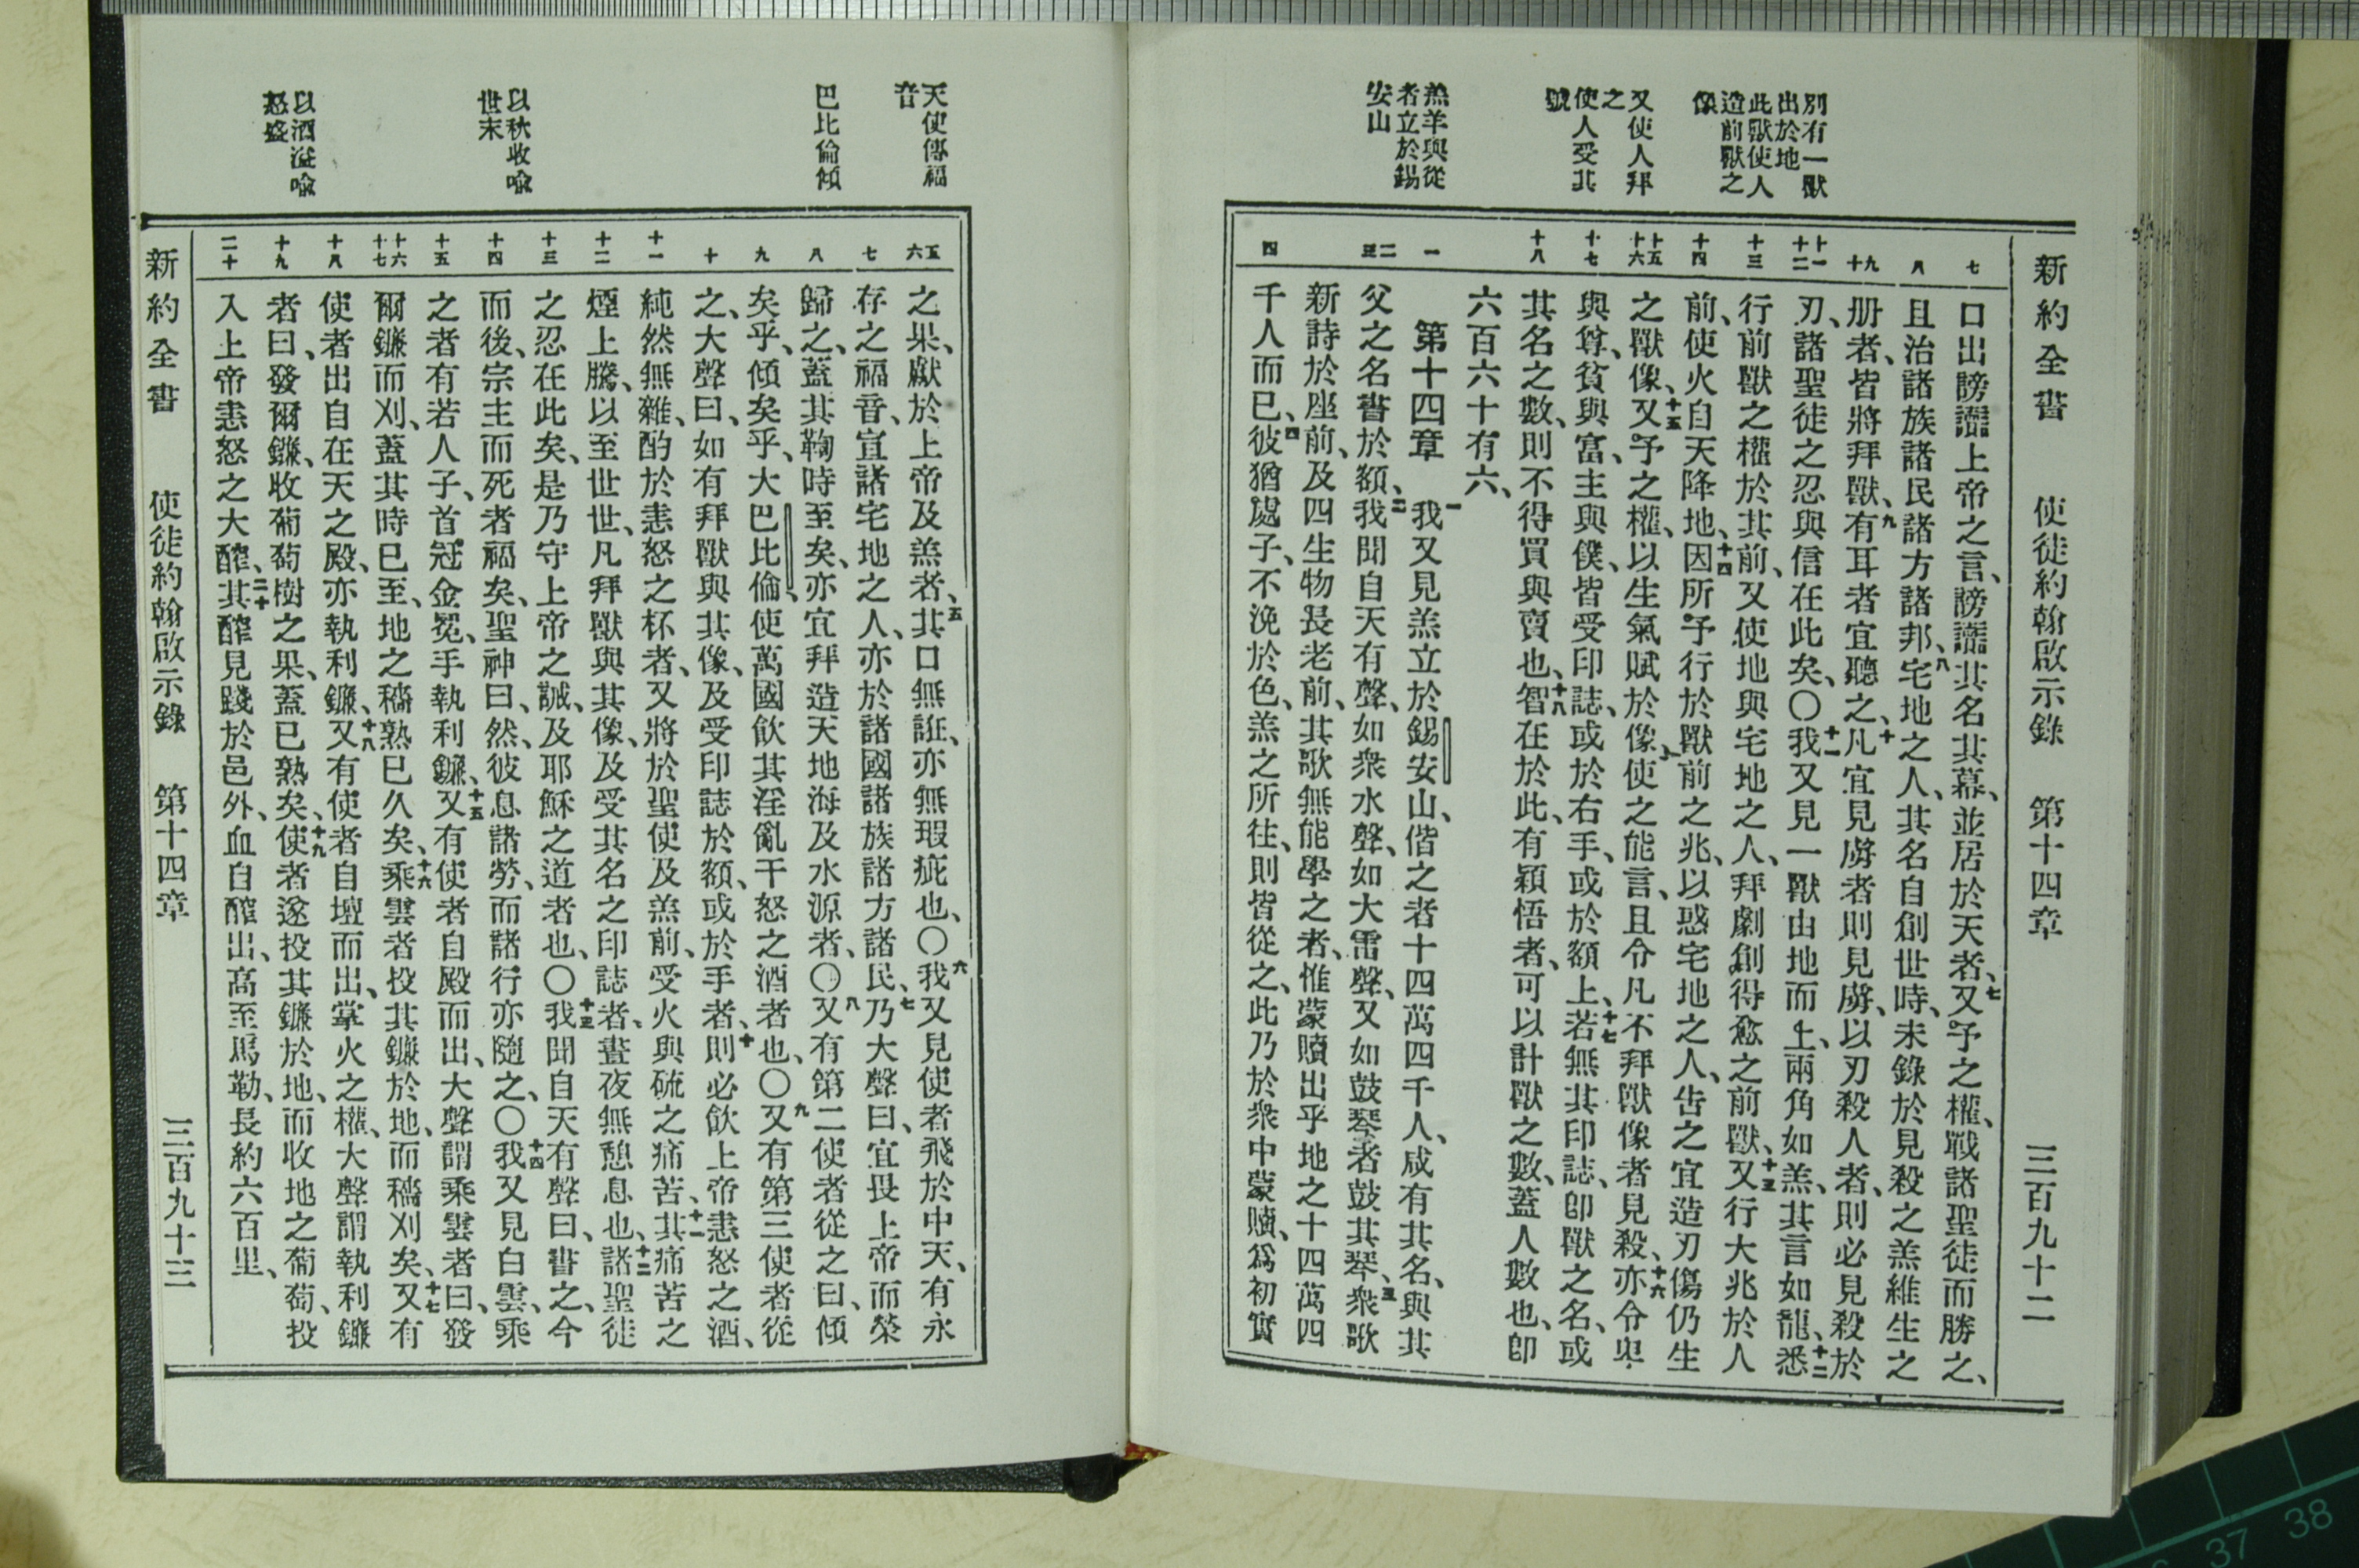 別有一獸
出於地
此獸使人
造前獸之
像
又使人拜
之
使人受其
號
羔羊與從
者立於錫
安山
新約全書 使徒約翰啟示錄 第十四章 三百九十二
七
八
九十
十一十二
十三
十四
十五十六
十七
十八
一
二三
四
口出謗讟上帝之言、謗讟其名其幕、並居於天者、七又予之權、戰諸聖徒而勝之、
且治諸族諸民諸方諸邦、八宅地之人、其名自創世時、未錄於見殺之羔維生之
册者、皆將拜獸、九有耳者宜聽之、十凡宜見虜者則見虜、以刃殺人者、則必見殺於
刃、諸聖徒之忍與信在此矣、〇十一我又見一獸由地而上、兩角如羔、其言如龍、十二悉
行前獸之權於其前、又使地與宅地之人、拜劇創得愈之前獸、十三又行大兆於人
前、使火自天降地、十四因所予行於獸前之兆、以惑宅地之人、告之宜造刃傷仍生
之獸像、十五又予之權、以生氣賦於像、使之能言、且令凡不拜獸像者見殺、十六亦令卑
與尊、貧與富、主與僕、皆受印誌、或於右手、或於額上、十七若無其印誌、卽獸之名、或
其名之數、則不得買與賣也、十八智在於此、有穎悟者、可以計獸之數、蓋人數也、卽
六百六十有六、
第十四章 一我又見羔立於錫安山、偕之者十四萬四千人、咸有其名、與其
父之名書於額、二我聞自天有聲、如衆水聲、如大雷聲、又如鼓琴者鼓其琴、三衆歌
新詩於座前、及四生物長老前、其歌無能學之者、惟蒙贖出乎地之十四萬四
千人而已、四彼猶處子、不浼於色、羔之所往、則皆從之、此乃於衆中蒙贖、爲初實
天使傳福
音
巴比倫傾
以秋收喩
世末
以酒溢喩
怒盛
五六
七
八
九
十
十一
十二
十三
十四
十五
十六十七
十八
十九
二十
之果、獻於上帝及羔者、五其口無誑、亦無瑕疵也、〇六我又見使者飛於中天、有永
存之福音、宣諸宅地之人、亦於諸國諸族諸方諸民、七乃大聲曰、宜畏上帝而榮
歸之、蓋其鞫時至矣、亦宜拜造天地海及水源者、〇八又有第二使者從之曰、傾
矣乎、傾矣乎、大巴比倫、使萬國飮其淫亂干怒之酒者也、〇九又有第三使者從
之、大聲曰、如有拜獸與其像、及受印誌於額、或於手者、十則必飮上帝恚怒之酒、
純然無雜、酌於恚怒之杯者、又將於聖使及羔前、受火與硫之痛苦、十一其痛苦之
煙上騰、以至世世、凡拜獸與其像、及受其名之印誌者、晝夜無憩息也、十二諸聖徒
之忍在此矣、是乃守上帝之誡、及耶穌之道者也、〇十三我聞自天有聲曰、書之、今
而後、宗主而死者福矣、聖神曰、然、彼息諸勞、而諸行亦隨之、〇十四我又見白雲、乘
之者有若人子、首冠金冕、手執利鐮、十五又有使者自殿而出、大聲謂乘雲者曰、發
爾鐮而刈、蓋其時已至、地之穡熟已久矣、十六乘雲者投其鐮於地、而穡刈矣、十七又有
使者出自在天之殿、亦執利鐮、十八又有使者自壇而出、掌火之權、大聲謂執利鐮
者曰、發爾鐮、收葡萄樹之果、蓋已熟矣、十九使者遂投其鐮於地、而收地之葡萄、投
入上帝恚怒之大醡、二十其醡見踐於邑外、血自醡出、高至馬勒、長約六百里、
新約全書 使徒約翰啟示錄 第十四章 三百九十三
37 38